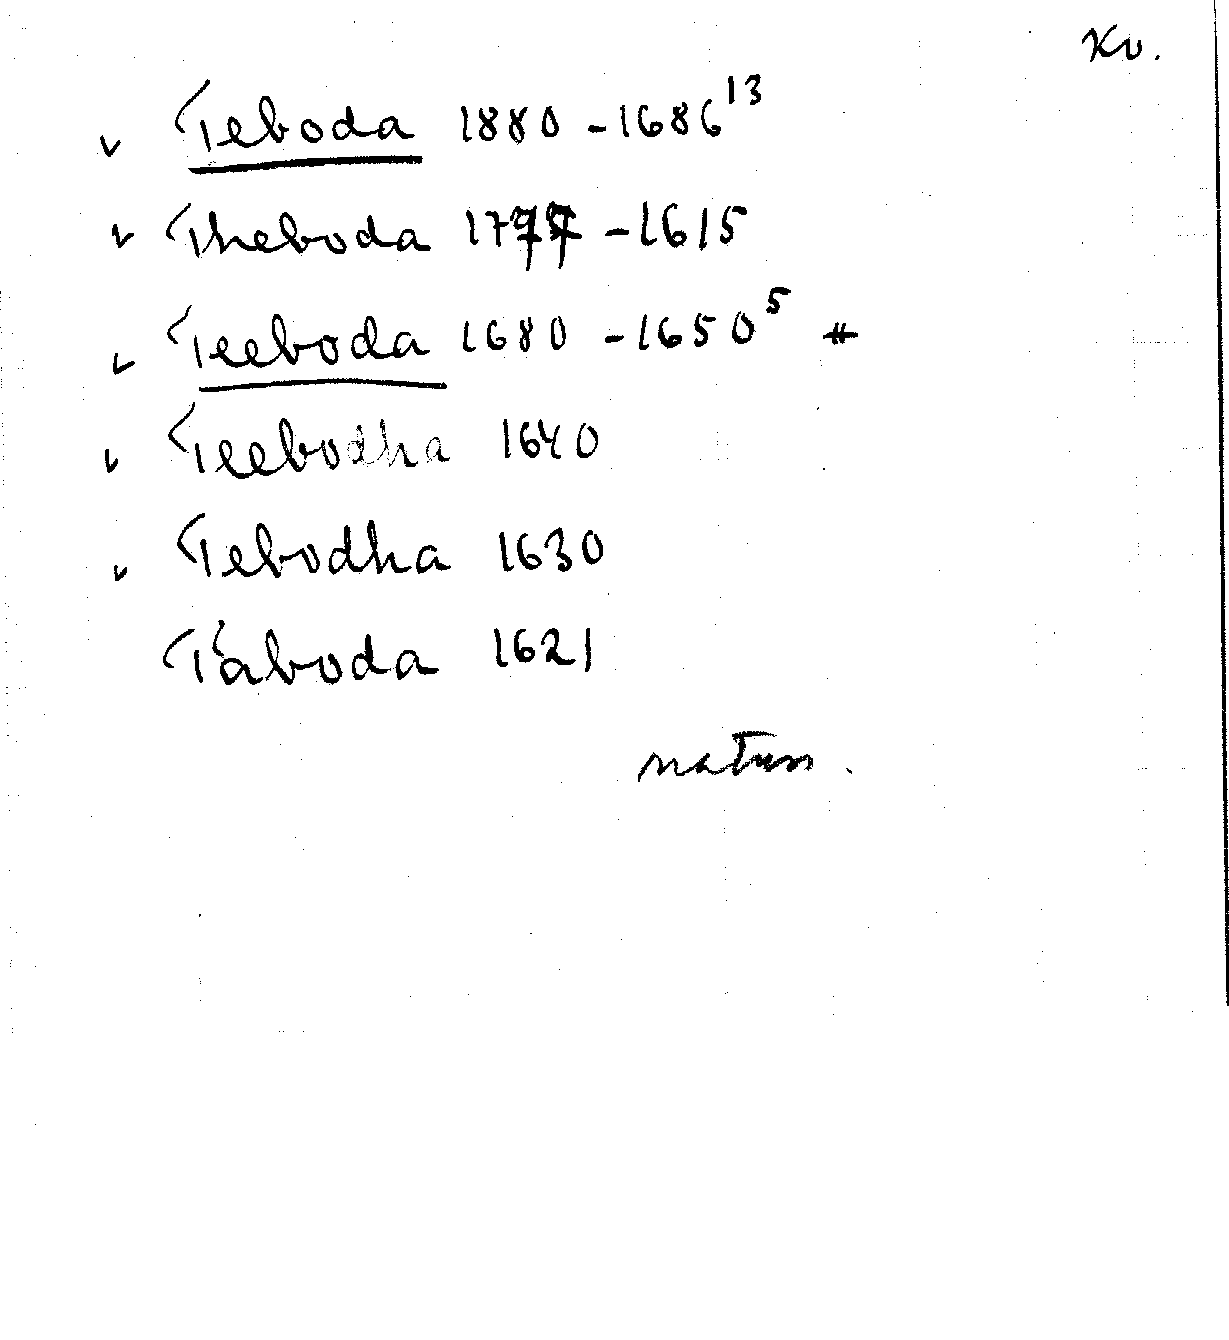 Kv.
v Teboda 1880 - 1686 13
v Theboda 1777 - 1615
v Teeboda 1680 - 1650 5 #
v Teebodha 1640
v Tebodha 1630
Tåboda 1621